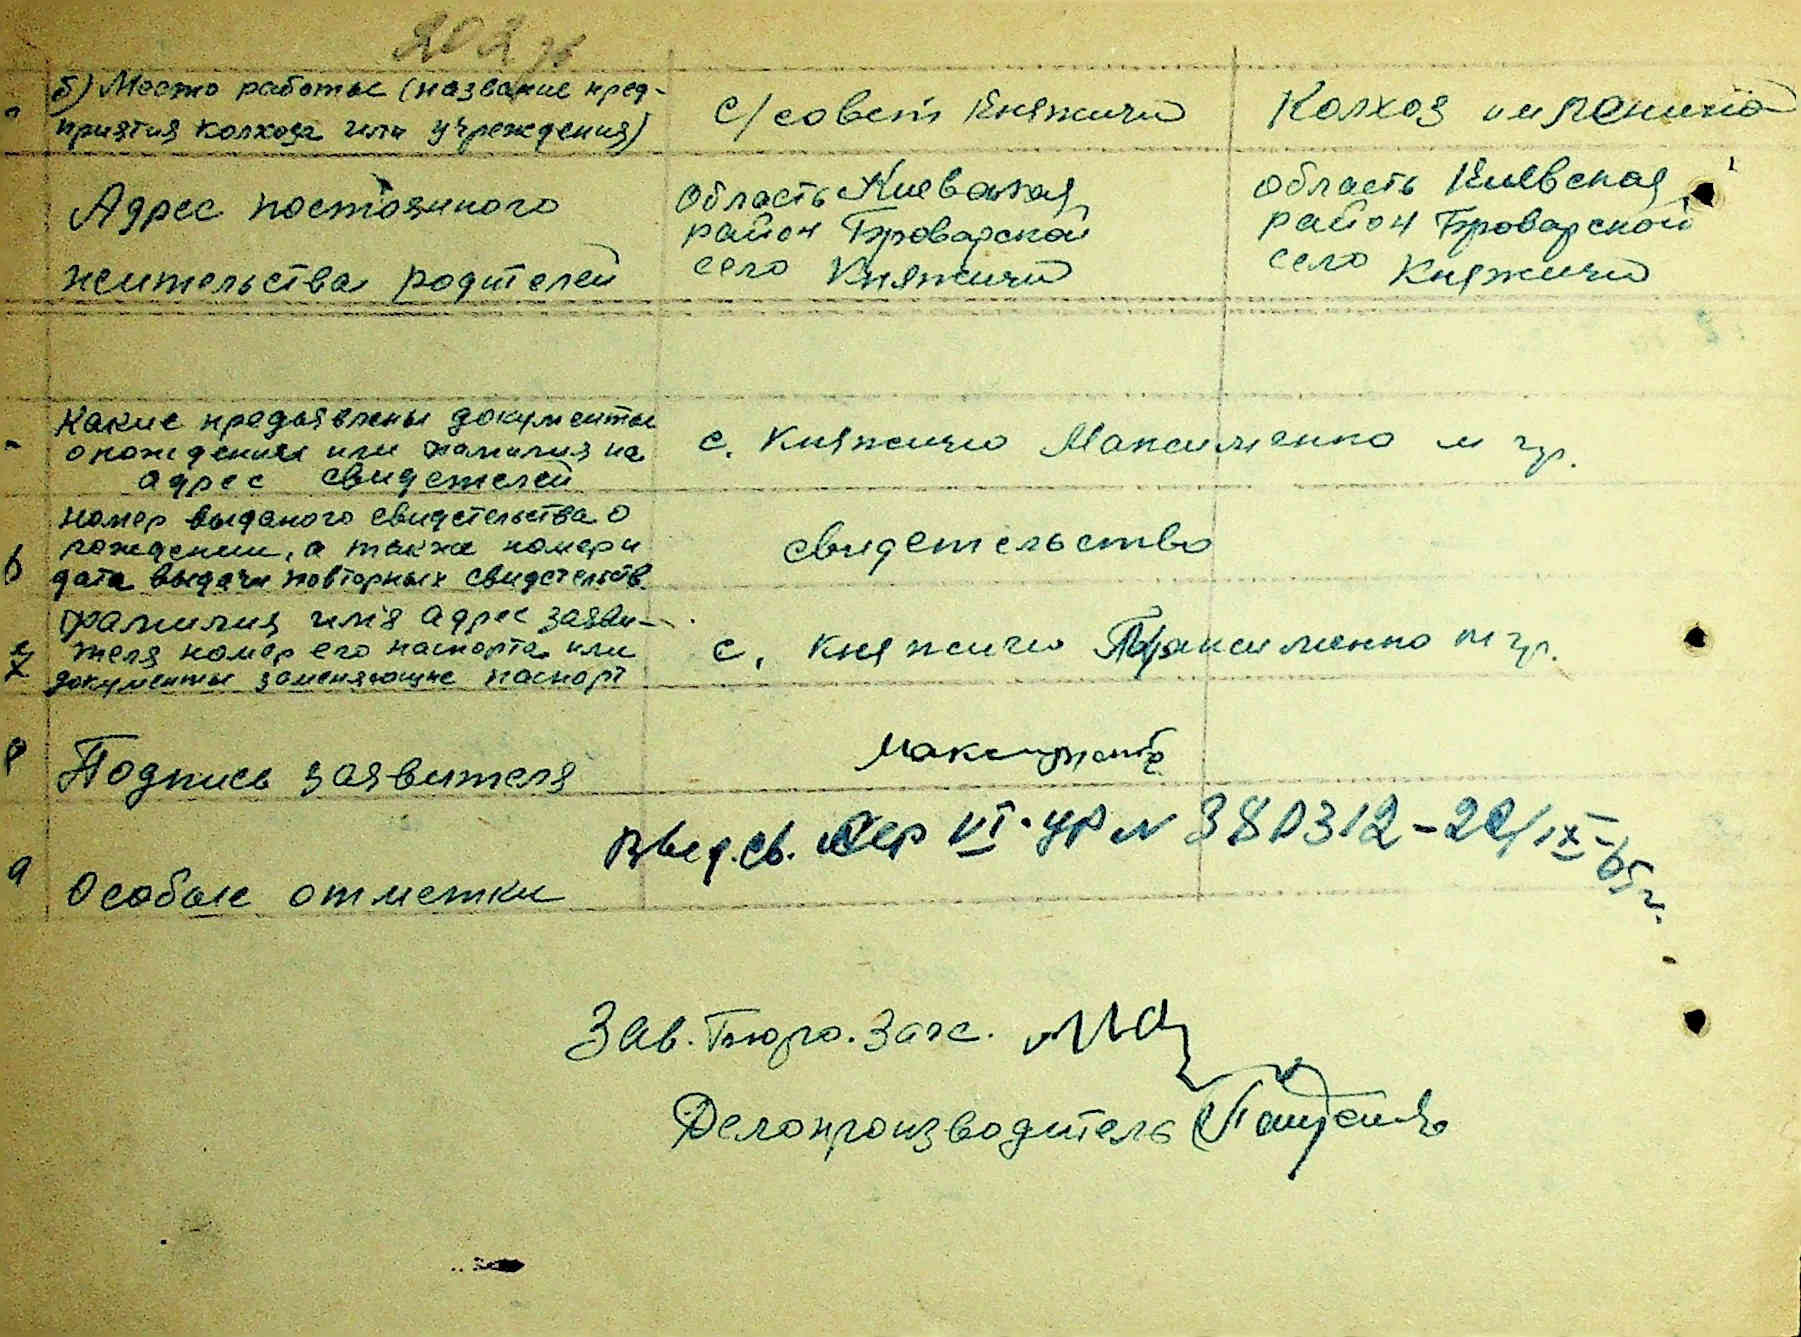 202
б) Место работы (название пред-
приятия колхоза или учреждения)
с/совет Княжичи
Колхоз им Ленина
Адрес постоянного
жительства родителей
Область Киевская
район Броварской
село Княжичи
область Киевская
район Броварской
село Княжичи
Какие предьявлены документы
о рождении или фамилия и
адрес свидетелей
с. Княжичи Максименко М Гр.
номер выданого свидетельства о
рождении, а также номер и
дата выдачи повторных свидетельств
свидетельство
6
фамилия имя адрес заяви-
теля номер его паспорта или
документы заменяющие паспорт
с. Княжичи Максименко М Гр.
7
8
Подпись заявителя
Максименко
9
Особые отметки
Выд. св. сер VI-УР N 380312-20/IX-65 г.
Зав. Бюро. Загс.
Делопроизводитель